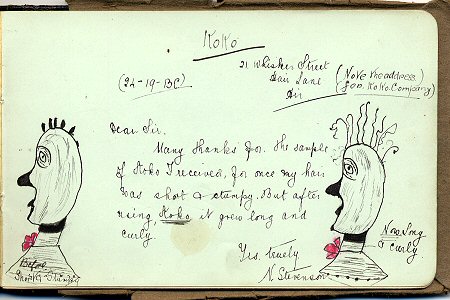 KOKO
21 Whisker Street
Hair Lane
Air
(24-19-BC)
(Note the address
for KoKo Company)
Dear Sir.
Many thanks for. the sample
of Koko I received, for once my hair
was short & stumpy. But after
using Koko, it grew long and
curly.
Yrs. truely
N. Stevenson
Before
Short & Stumpy
Now Long
& curly